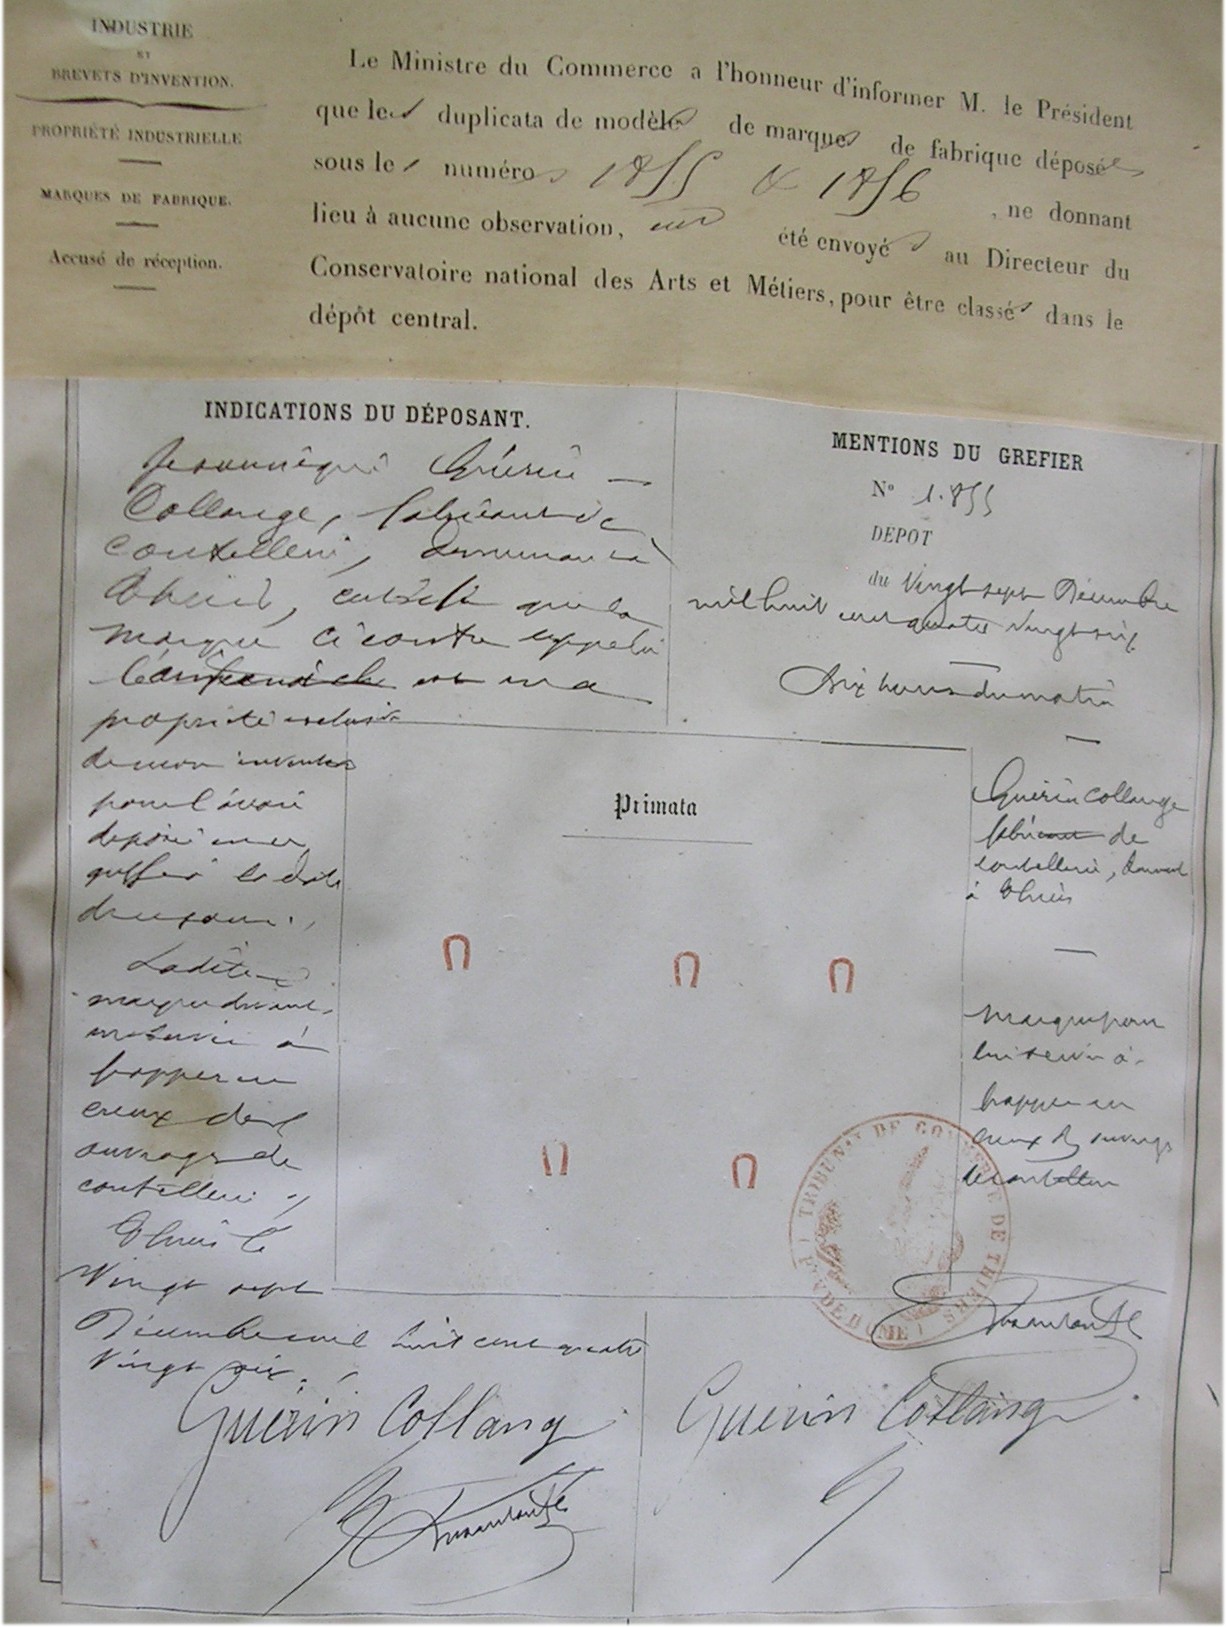 INDUSTRIE
ET
BREVETS D'INVENTION.
PROPRIÉTÉ INDUSTRIELLE
MARQUES DE FABRIQUE.
Accusé de réception.
Le Ministre du Commerce a l'honneur d'informer M. le Président
que les duplicata de modèles de marques de fabrique déposés
sous les numéros 1855 & 1856, ne donnant
lieu à aucune observation, ont été envoyés au Directeur du
Conservatoire national des Arts et Métiers, pour être classés dans le
dépôt central.
INDICATIONS DU DÉPOSANT.
Guérin
Collange, fabricant de
coutellerie, demeurant à
Thiers, que la
marque ci contre appelée
est ma
propriété exclusive
de mon invention
pour l'avoir
déposée
greffe
de ce jour.
Ladite
marque devant
me servir à
frapper en
creux des
ouvrages de
coutellerie.
Thiers le
Vingt sept
Décembre mil huit cent quatre
Vingt six.
Guerin Collange
MENTIONS DU GREFIER
N° 1.855
DEPOT
du Vingt sept Décembre
mil huit cent quatre Vingt six
dix heures du matin
Primata
Guérin Collange
fabricant de
coutellerie, demeurant
à Thiers
Marque pour
lui servir à
frapper en
creux des ouvrages
de coutellerie
TRIBUNAL DE COMMERCE DE THIERS (PUY DE DOME)
Guerin Collange